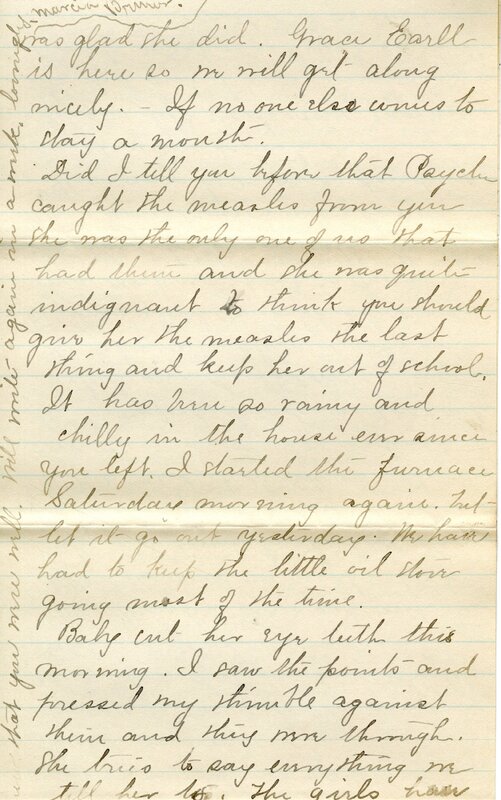 was glad she did. Grace Earll
is here so we will get along
nicely. - If no one else comes to
stay a month.
Did I tell you before that Psyche
caught the measles from you
she was the only one of us that
had them and she was quite
indignant to think you should
give her the measles the last
thing and keep her out of school.
It has been so rainy and
chilly in the house ever since
you left. I started the furnace
Saturday morning again. Let
let it go out yesterday. We have
had to keep the little oil stove
going most of the time.
Baby cut her eye teeth this
morning. I saw the points and
pressed my thimble against
them and they were through.
She tries to say everything we
tell her to. The girls have
that you were well. Will write again in a week. Lovingly
Marcia